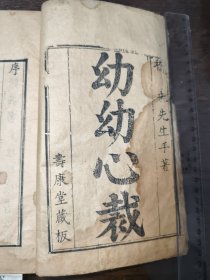 先生手著
幼幼心裁
壽康堂藏板
序